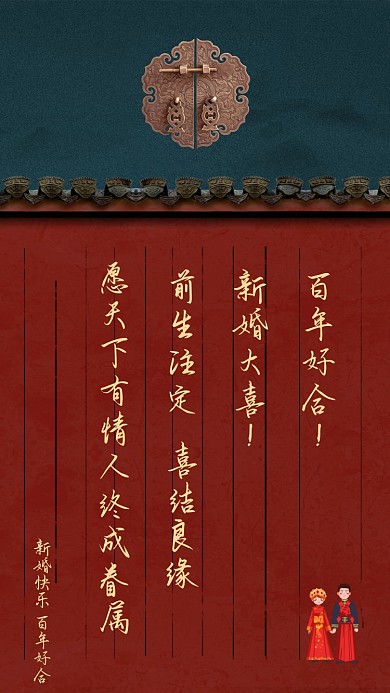 百年好合！
新婚大喜！
前生注定 喜结良缘
愿天下有情人终成眷属
新婚快乐 百年好合